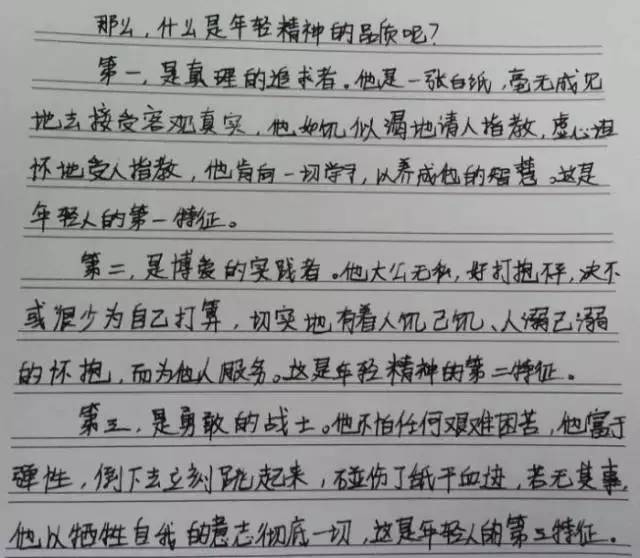 那么,什么是年轻精神的品质呢?
第一,是真理的追求者。他是一张白纸,毫无成见
地去接受客观真实,他如饥似渴地请人指教,虚心坦
怀地受人指教,他肯向一切学习,以养成他的智慧。这是
年轻人的第一特征。
第二,是博爱的实践者。他大公无私,好打抱不平,决不
或很少为自己打算,切实地有着人饥己饥、人溺己溺
的怀抱,而为他人服务。这是年轻精神的第二特征。
第三,是勇敢的战士。他不怕任何艰难困苦,他富于
弹性,倒下去立刻跳起来,碰伤了舐干血迹,若无其事,
他以牺牲自我的意志彻底一切,这是年轻人的第三特征。